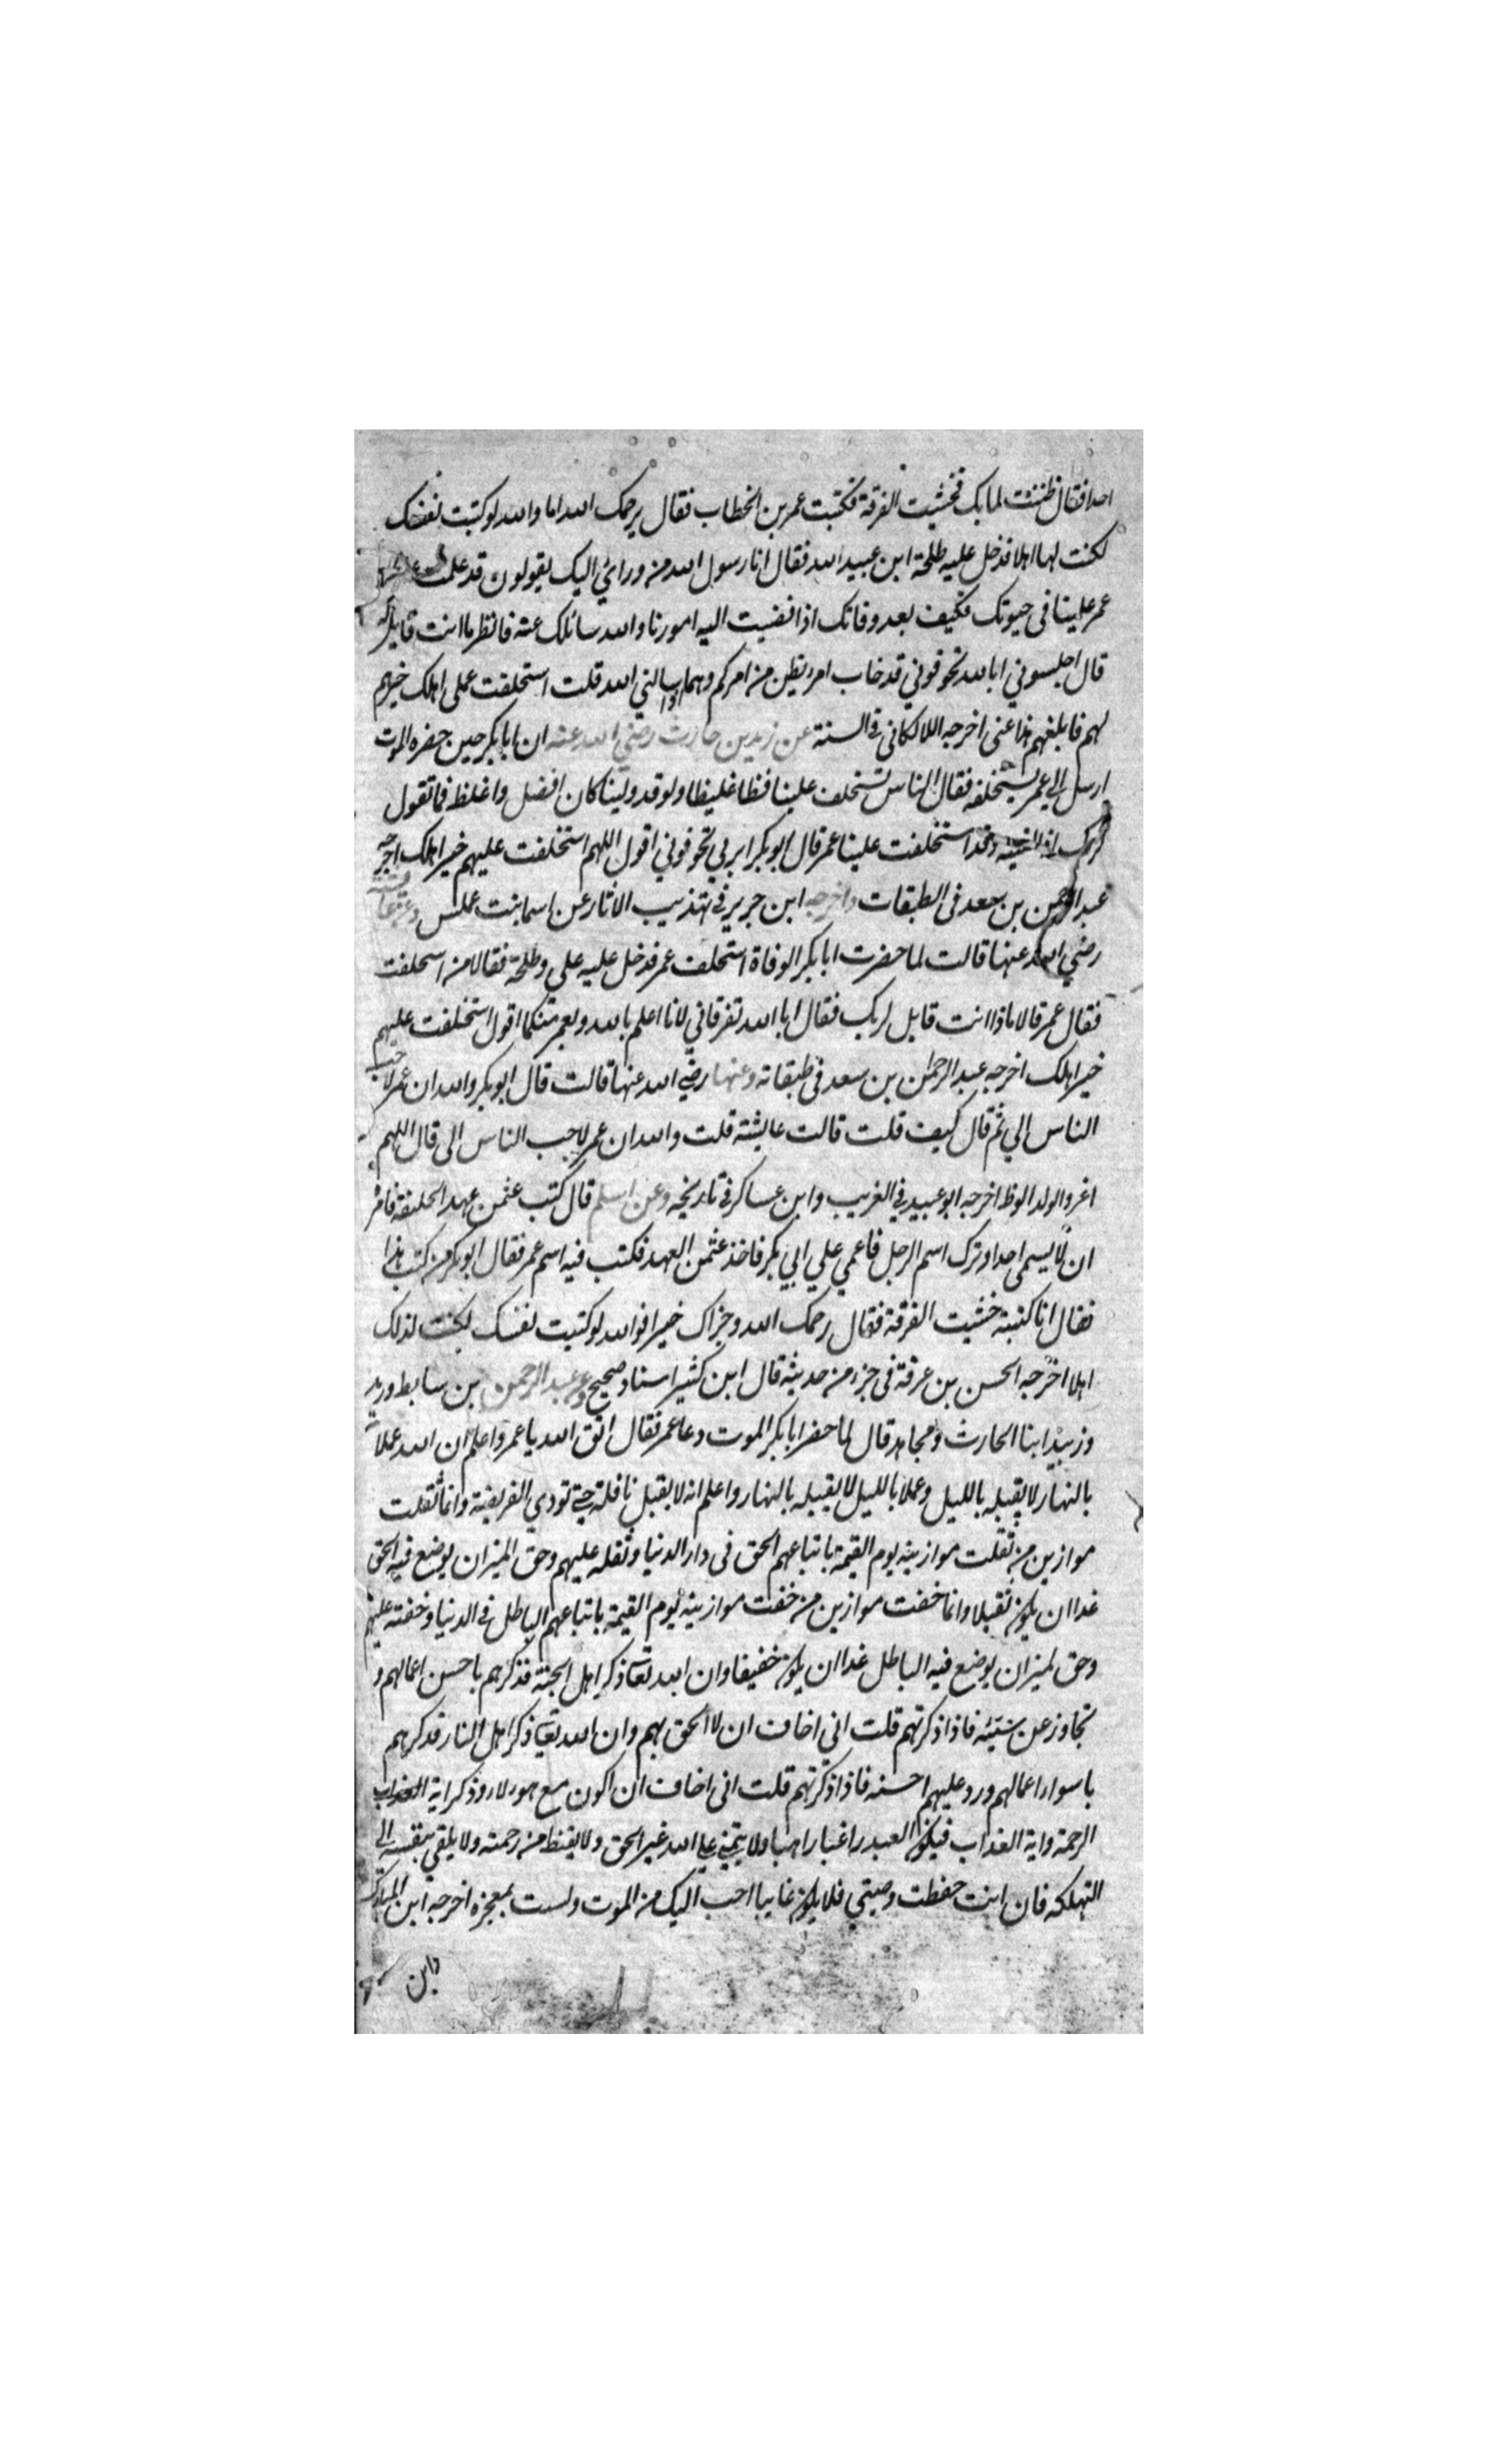 احدا فقال ظننت لما بك فخشيت الفرقة فكتبت عمر بن الخطاب فقال يرحمك الله اما والله لوكتبت نفسك
لكنت لها اهلا فدخل عليه طلحة ابن عبيد الله فقال انا رسول الله من ورائي اليك يقولون قد علمت
عمر علينا فى حيوتك فكيف بعد وفاتك اذا افضيت اليه امورنا والله سائلك عنه فانظر ما انت قايل له
قال اجلسوني ابا لله تخوفوني قد خاب امرء يظن من امركم وهما اذا سالني الله قلت استخلفت على اهلك خيرهم
لهم فابلغهم هذا عنى اخرجه اللالكائى فى السنة عن زيد بن حارث رضي الله عنه ان ابا بكر حين حضره الموت
ارسل الي عمر يستخلفه فقال الناس تستخلف علينا فظا غليظا ولو قد ولينا كان افضل واغلظ فما تقول
لربك اذا لقيته وقد استخلفت علينا عمر قال ابو بكر ابربي تخوفوني اقول اللهم استخلفت عليهم خير اهلك اخرجه
عبد الرحمن بن سعد فى الطبقات واخرجه ابن جرير فى تهذيب الاثار عن اسما بنت عملس وعن عائشة
رضي الله عنها قالت لما حضرت ابا بكر الوفاة استخلف عمر فدخل عليه على وطلحة فقالا من استخلفت
فقال عمر قالا ماذا انت قايل لربك فقال ابا الله تفرقاني لانا اعلم بالله وبعمر منكما اقول استخلفت عليهم
خير اهلك اخرجه عبد الرحمن بن سعد فى طبقاته وعنها رضي الله عنها قالت قال ابو بكر والله ان عمر لاحب
الناس الي ثم قال كيف قلت قالت عايشة قلت والله ان عمر لاحب الناس الى قال اللهم
اغر والولد الوظ اخرجه ابو عبيد في الغريب وابن عساكر فى تاريخه وعن اسلم قال كتب عثمن عهد الخليفة فامر
ان لا يسمى احدا وترك اسم الرجل فاعمي علي ابي بكر فاخذ عثمن العهد فكتب فيه اسم عمر فقال ابو بكر من كتب هذا
فقال انا كتبته خشيت الفرقة فقال رحمك الله وجزاك خيرا فوالله لوكتبت نفسك لكنت لذلك
اهلا اخرجه الحسن بن عرفة فى جزء من حديثه قال ابن كثير اسناد صحيح وعن عبد الرحمن بن سابط وزيد
وزبيد ابنا الحارث ومجاهد قال لما حضر ابا بكر الموت دعا عمر فقال اتق الله يا عمر واعلم ان الله عملا
بالنهار لا يقبله بالليل وعملا بالليل لا يقبله بالنهار واعلم انه لا يقبل نافلة حتى تودي الفريضة وانما ثقلت
موازين من ثقلت موازينه يوم القيمة باتباعهم الحق فى دار الدنيا وثقله عليهم وحق الميزان يوضع فيه الحق
غدا ان يكون ثقيلا وانما خفت موازين من خفت موازينه يوم القيمة باتباعهم الباطل فى الدنيا وخفته عليهم
وحق لميزان يوضع فيه الباطل غدا ان يكون خفيفا وان الله تعالى ذكر اهل الجنة فذكرهم باحسن اعمالهم و
تجاوز عن سيئه فاذا ذكرتهم قلت انى اخاف ان لا الحق بهم وان الله تعالى ذكر اهل النار فذكرهم
باسواء اعمالهم ورد عليهم احسنه فاذا ذكرتهم قلت انى اخاف ان اكون مع هولاء وذكر اية
الرحمة واية العذاب فيكون العبد راغبا راهبا ولا يتمني علي الله غير الحق ولا يقنط من رحمته ولا يلقي بنفسه الي
التهلكه فان انت حفظت وصيتي فلا يكون غايبا احب اليك من الموت ولست بمعجزه اخرجه ابن المبارك
وابن